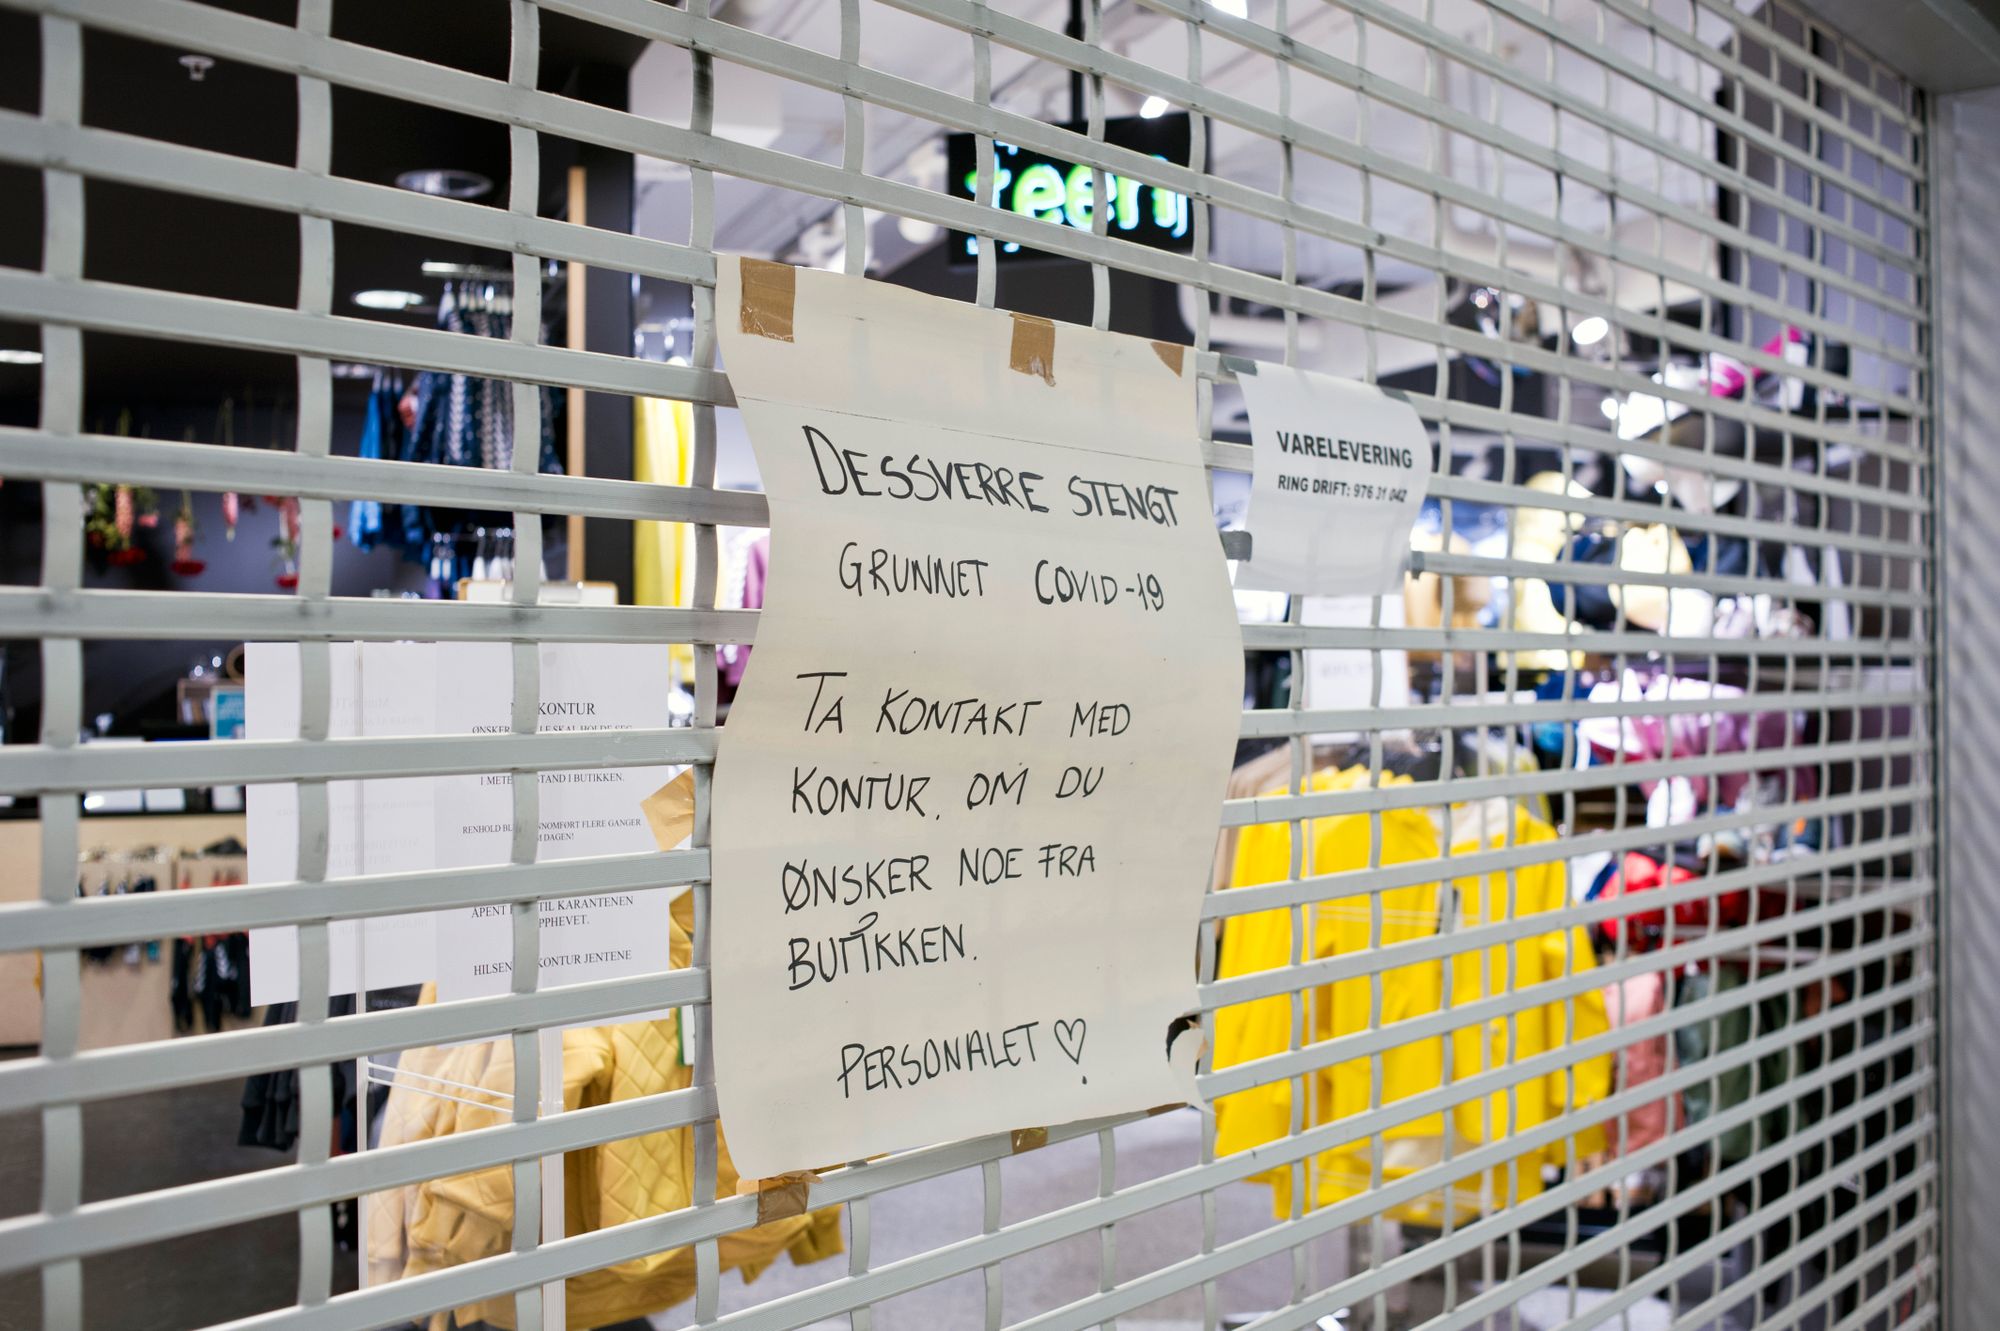 teen
DESSVERRE STENGT
GRUNNET COVID-19
TA KONTAKT MED
KONTUR, OM DU
ØNSKER NOE FRA
BUTIKKEN.
PERSONALET ♡
VARELEVERING
RING DRIFT: 976 31 042
KONTUR
I METE STAND I BUTIKKEN.
RENHOLD BL NNOMFØRT FLERE GANGER
M DAGEN!
ÅPENT TIL KARANTENEN
PPHEVET.
HILSEN KONTUR JENTENE